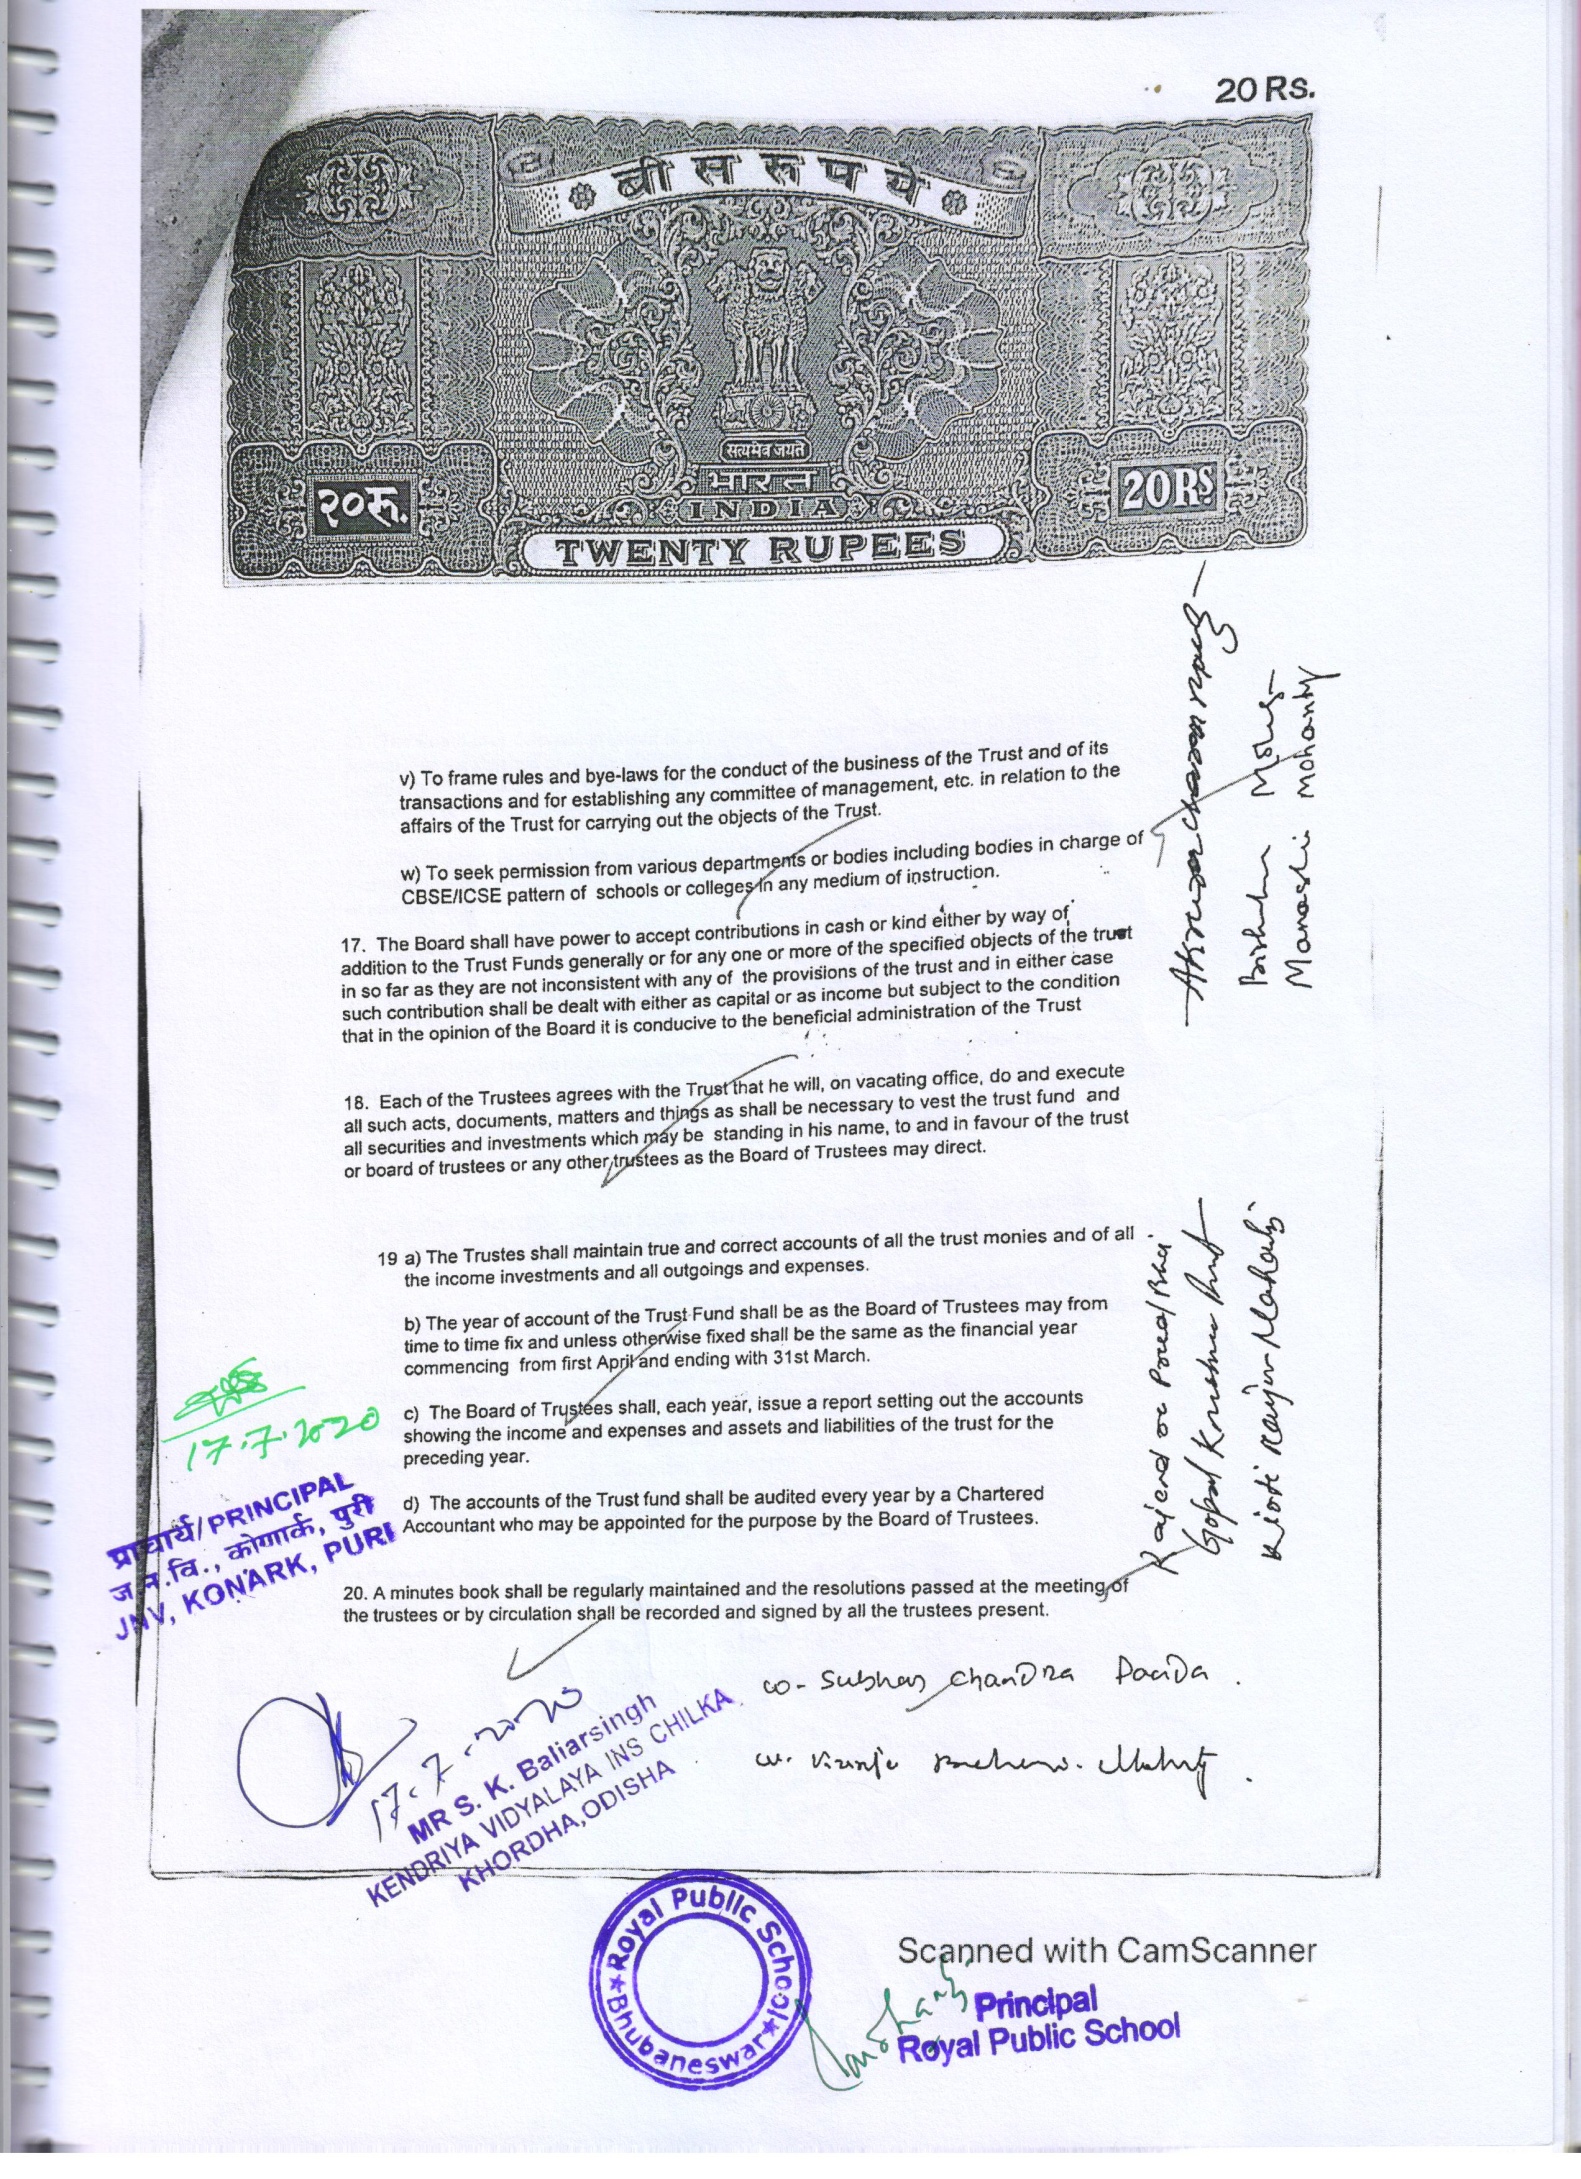 20 RS.
बीस रुपये
सत्यमेव जयते
भारत
INDIA
२०रू.
20 RS
TWENTY RUPEES
v) To frame rules and bye-laws for the conduct of the business of the Trust and of its
transactions and for establishing any committee of management, etc. in relation to the
affairs of the Trust for carrying out the objects of the Trust.
w) To seek permission from various departments or bodies including bodies in charge of
CBSE/ICSE pattern of schools or colleges in any medium of instruction.
17. The Board shall have power to accept contributions in cash or kind either by way of
addition to the Trust Funds generally or for any one or more of the specified objects of the trust
in so far as they are not inconsistent with any of the provisions of the trust and in either case
such contribution shall be dealt with either as capital or as income but subject to the condition
that in the opinion of the Board it is conducive to the beneficial administration of the Trust
18. Each of the Trustees agrees with the Trust that he will, on vacating office, do and execute
all such acts, documents, matters and things as shall be necessary to vest the trust fund and
all securities and investments which may be standing in his name, to and in favour of the trust
or board of trustees or any other trustees as the Board of Trustees may direct.
19 a) The Trustes shall maintain true and correct accounts of all the trust monies and of all
the income investments and all outgoings and expenses.
b) The year of account of the Trust Fund shall be as the Board of Trustees may from
time to time fix and unless otherwise fixed shall be the same as the financial year
commencing from first April and ending with 31st March.
c) The Board of Trustees shall, each year, issue a report setting out the accounts
showing the income and expenses and assets and liabilities of the trust for the
preceding year.
d) The accounts of the Trust fund shall be audited every year by a Chartered
Accountant who may be appointed for the purpose by the Board of Trustees.
20. A minutes book shall be regularly maintained and the resolutions passed at the meeting of
the trustees or by circulation shall be recorded and signed by all the trustees present.
Manashi Mohanty
Gopal Krishna
17.7.2020
प्राचार्य/PRINCIPAL
ज.न.वि., कोणार्क, पुरी
JNV, KONARK, PURI
Subhas Chandra Parida
17.7.2020
MR S. K. Baliarsingh
KENDRIYA VIDYALAYA INS CHILKA
KHORDHA, ODISHA
Royal Public School
Bhubaneswar
Scanned with CamScanner
Principal
Royal Public School